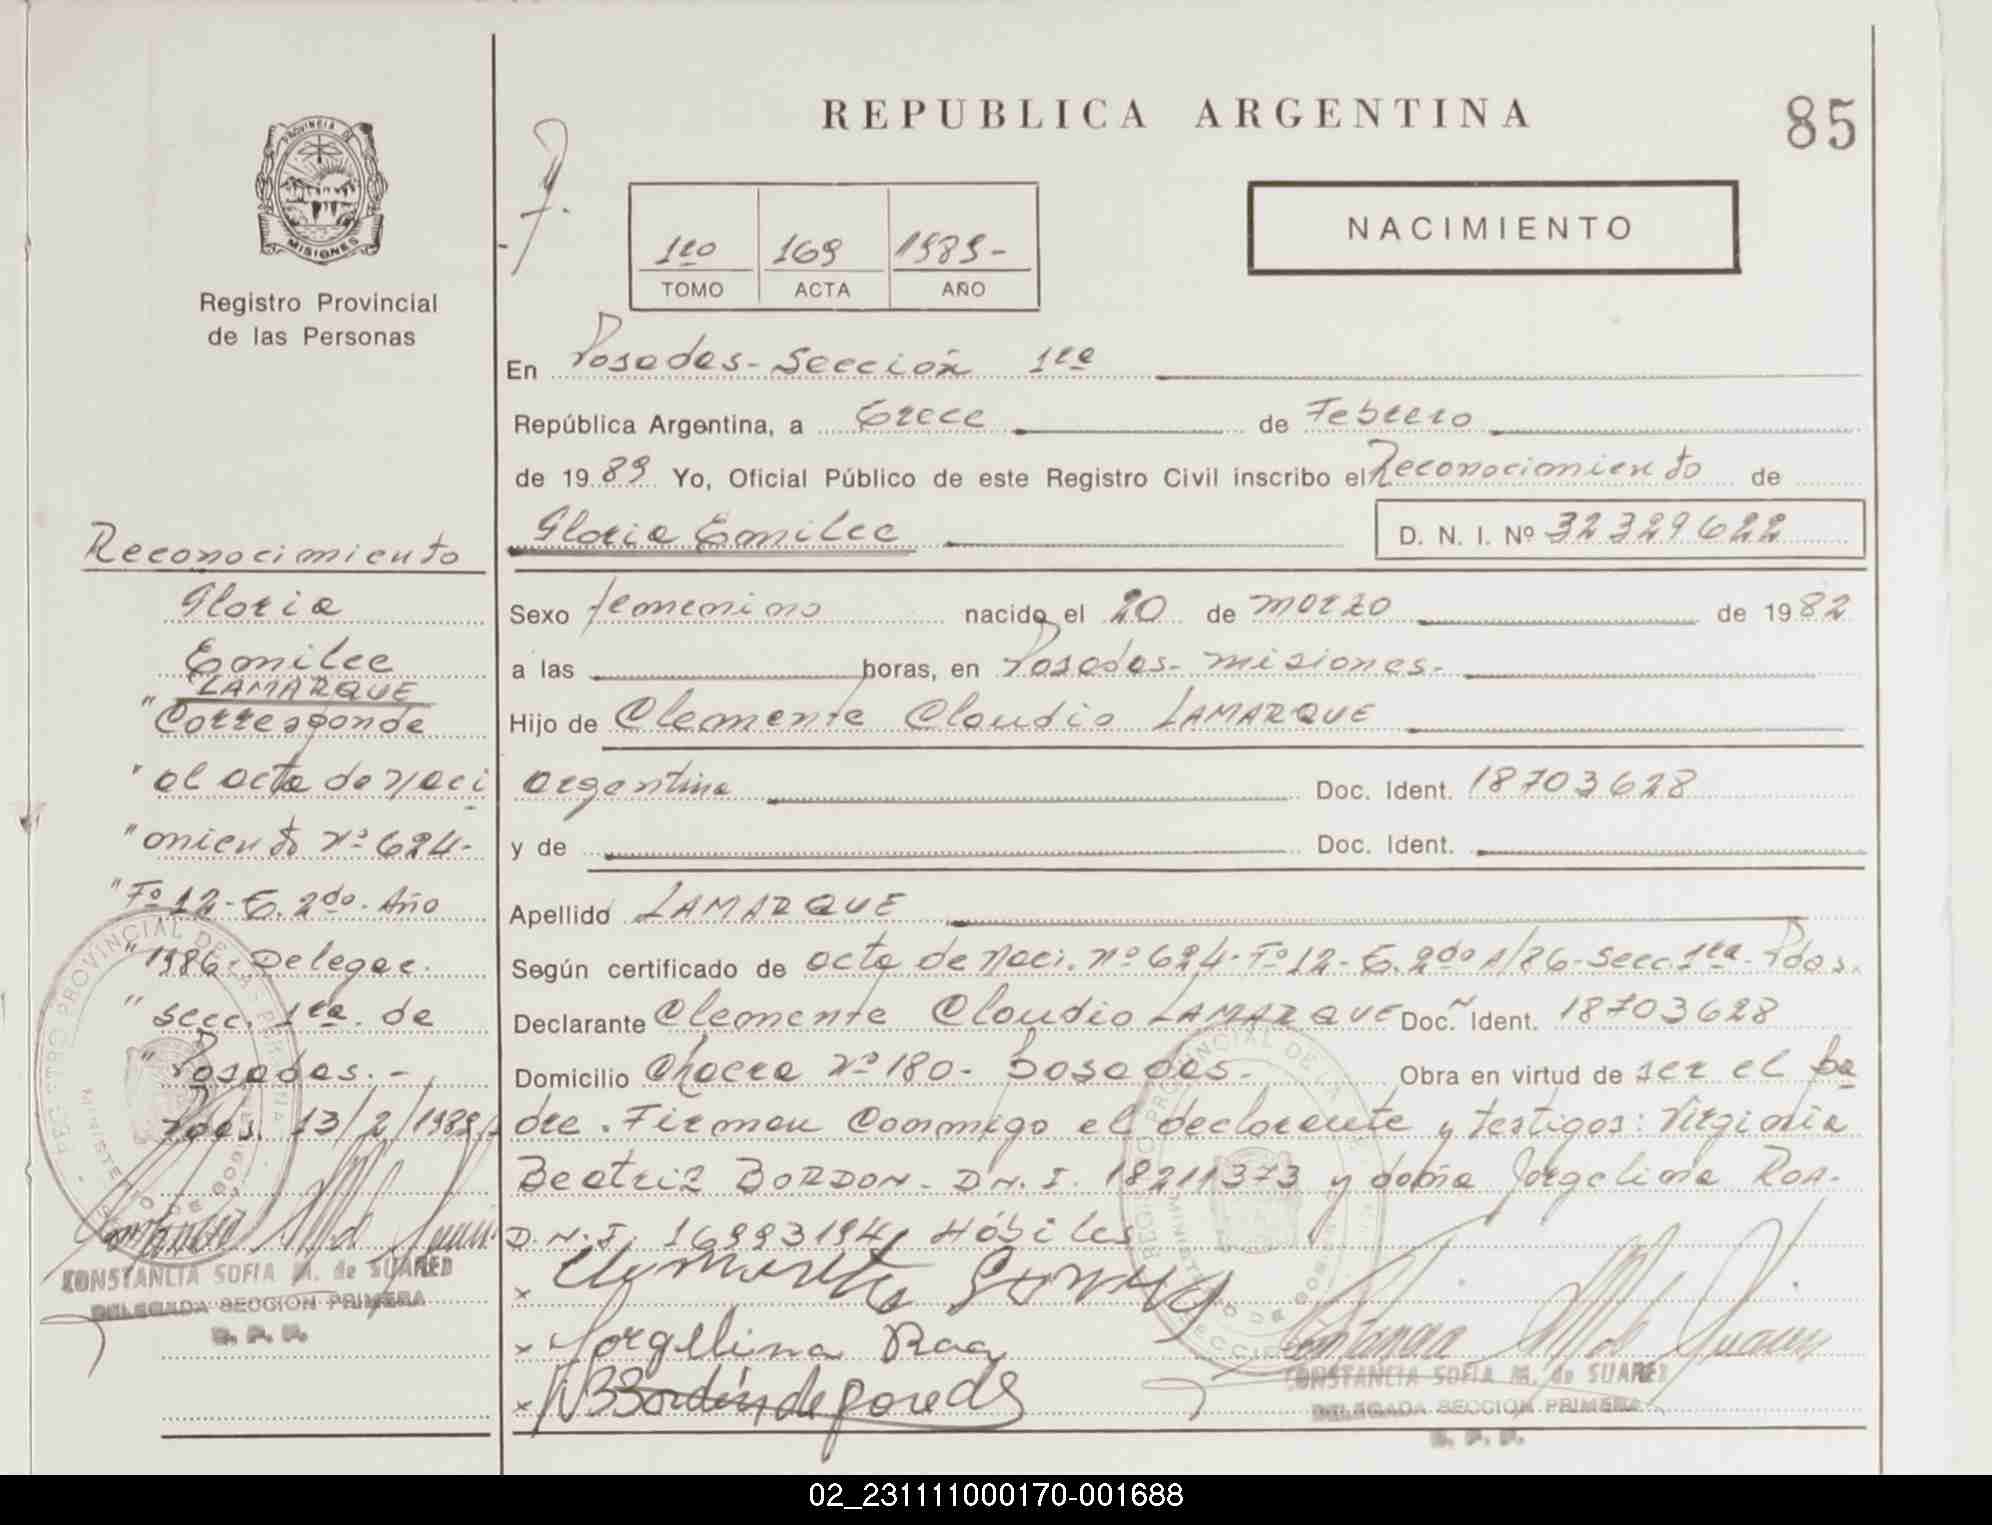 REPUBLICA ARGENTINA
85
PROVINCIA DE
MISIONES
Registro Provincial
de las Personas
1ro 169 1989-
TOMO ACTA AÑO
NACIMIENTO
En Posadas- Sección 1ra
República Argentina, a Trece de Febrero
de 1989 Yo, Oficial Público de este Registro Civil inscribo el Reconocimiento de
Gloria Emilce D. N. I. Nº 32329622
Sexo femenino nacido el 20 de marzo de 1982
a las horas, en Posadas- misiones-
Hijo de Clemente Claudio LAMARQUE
argentina Doc. Ident. 18703628
y de Doc. Ident.
Apellido LAMARQUE
Según certificado de acta de Naci. nº 624- Fº 12- T. 2do A/86- secc. 1ra. Pdas.
Declarante Clemente Claudio LAMARQUE Doc. Ident. 18703628
Domicilio Chacra Nº 180- Posadas- Obra en virtud de ser el pa
dre. Firman conmigo el declarante y testigos: Virginia
Beatriz BORDON- D.N.I. 18211373 y doña Jorgelina ROA-
D.N.I. 16993194, Hábiles
x
x Jorgelina Roa
x
CONSTANCIA SOFIA M. de SUAREZ
DELEGADA SECCION PRIMERA
R. P. P.
Reconocimiento
Gloria
Emilce
LAMARQUE
"Corresponde
"al acta de naci
"miento Nº 624-
"Fº 12- T. 2do. Año
"1986- Delegac.
"secc. 1ra. de
"Posadas.-
Pdas. 13/2/1989
CONSTANCIA SOFIA M. de SUAREZ
DELEGADA SECCION PRIMERA
R. P. P.
REGISTRO PROVINCIAL DE LAS
MINISTERIO DE GOB
02_231111000170-001688